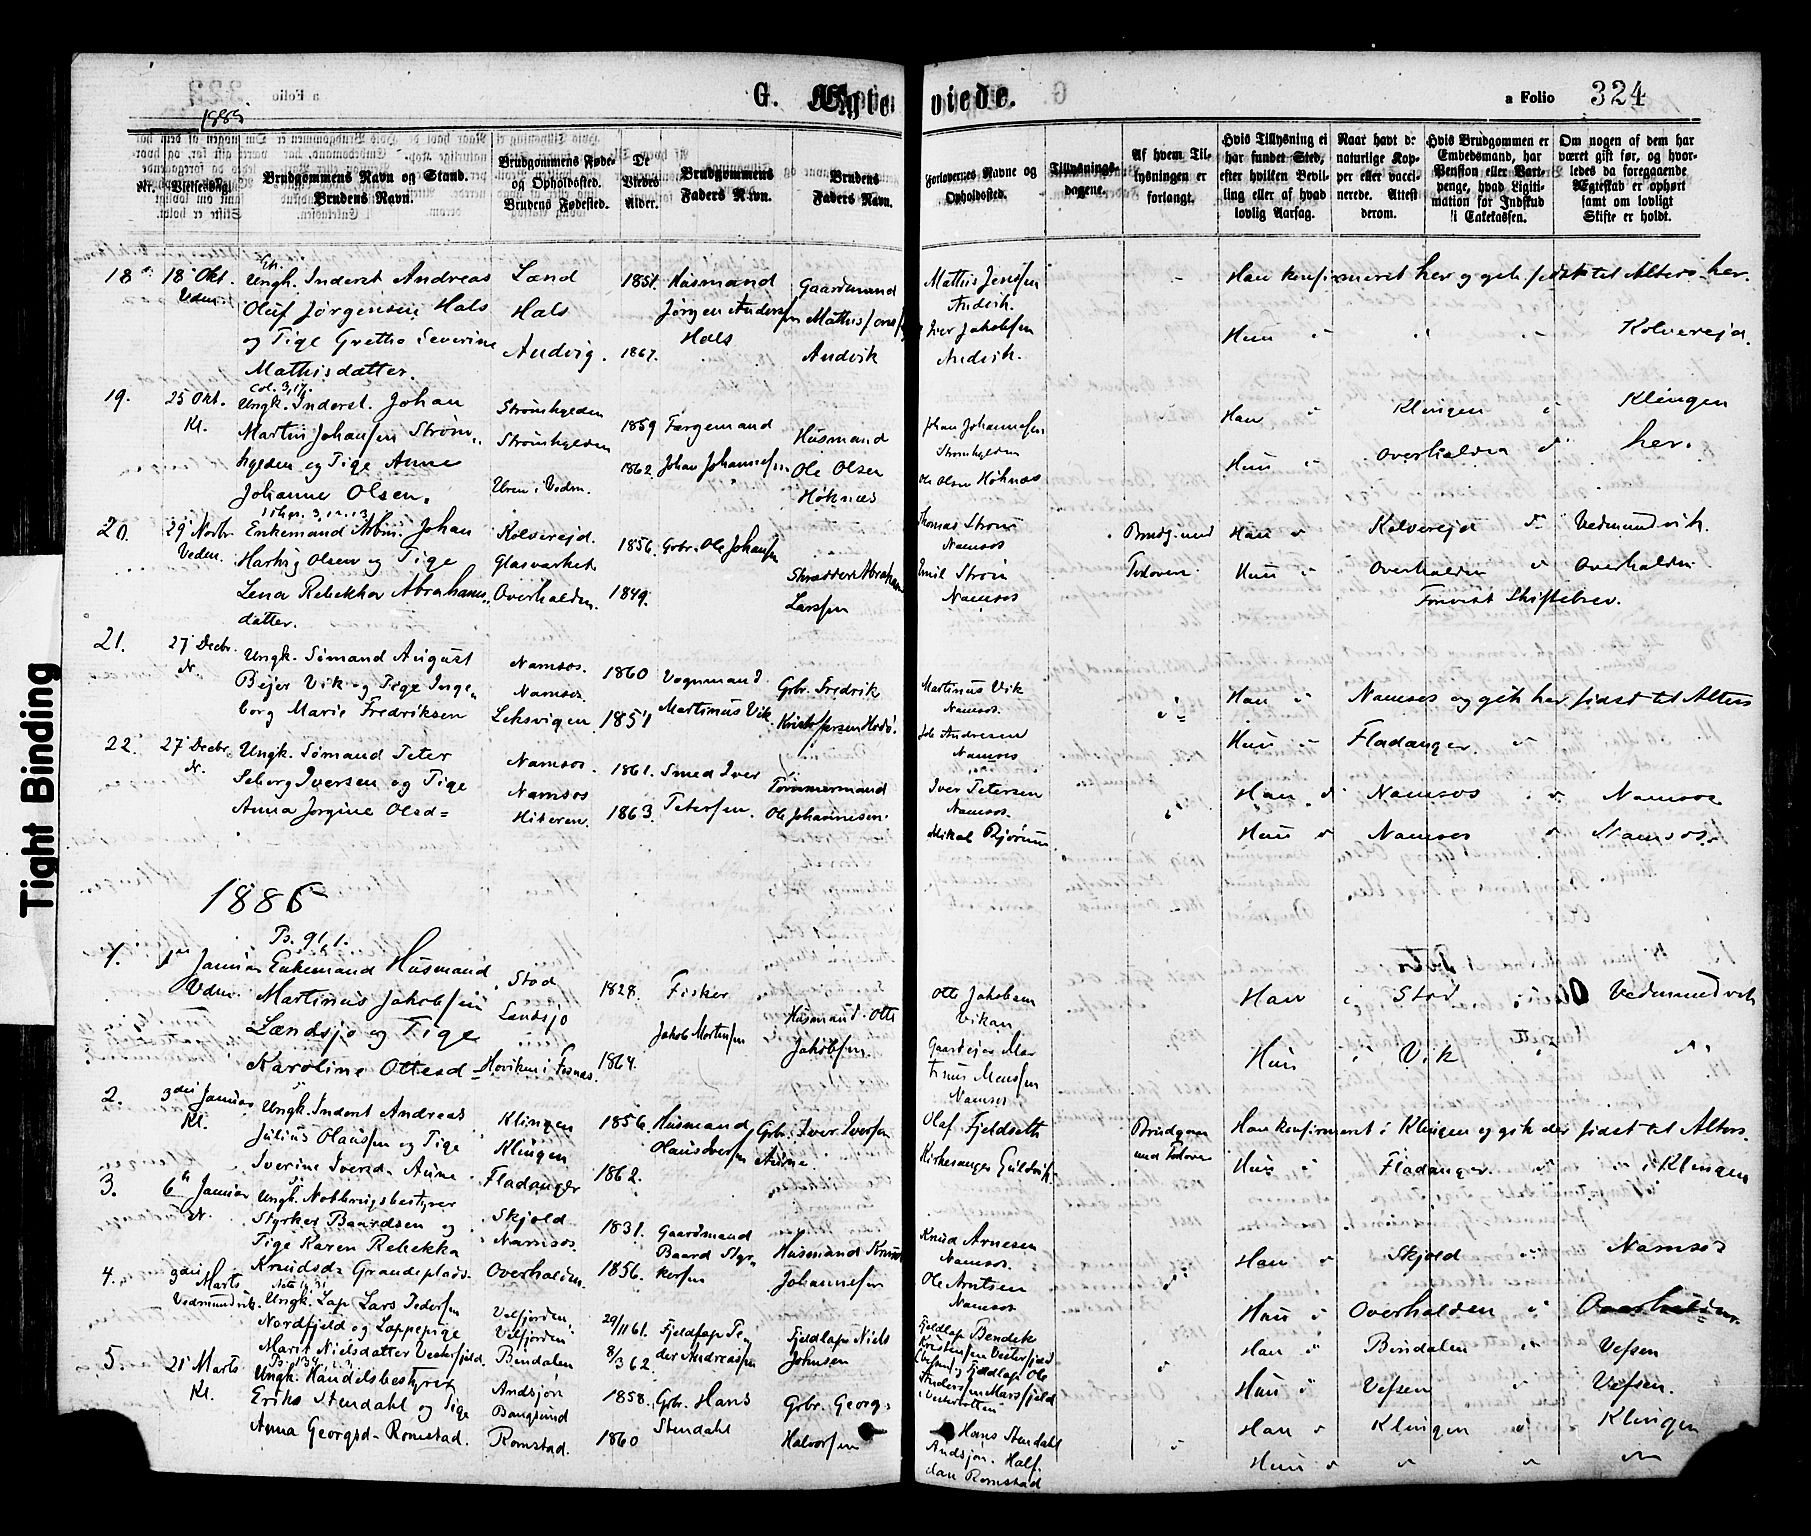 G. Ægteviede.
a Folio 324
1885
Nr.
Vielsesdag.
Brudgommens Navn og Stand.
Brudens Navn.
Brudgommens Føde-
og Opholdssted.
Brudens Fødested.
De
Viedes
Alder.
Brudgommens
Faders Navn.
Brudens
Faders Navn.
Forlovernes Navne og
Opholdssted.
Tillysnings-
dagene.
Af hvem Til-
lysningen er
forlangt.
Hvis Tillysning ei
har fundet Sted,
efter hvilken Bevil-
ling eller af hvad
lovlig Aarsag.
Naar havt de
naturlige Kop-
per eller vacci-
nerede. Attest
derom.
Hvis Brudgommen er
Embedsmand, har
Pension eller Vart-
penge, hvad Ligiti-
mation for Indskud
i Enkekassen.
Om nogen af dem har
været gift før, og hvor-
ledes da foregaaende
Ægteskab er ophørt
samt om lovligt
Skifte er holdt.
18 18 Okt. Vedm.
Ungk. Inderst Andreas
Oluf Jørgensen Hals
og Pige Gretha Severine
Mathisdatter.
Lænd
Hals
Andvig.
1851.
1867.
Husmand
Jørgen Andersen
Hals
Gaardmand
Mathis Jensen
Andvik
Mathis Jenssen
Andvik.
Iver Jakobsen
Andvik.
Han konfirmeret her og gik sidst til Alters her.
Hun " " " Kolvereid.
19. 25 Okt. Kl.
Col. 3, 17.
Ungk. Inderst. Johan
Martin Johansen Strøm-
hylden og Pige Anne
Johanne Olsen.
Strømhylden
Strømhylden
Uren i Vedm.
1859
1862.
Færgemand
Johan Johannesen
Husmand
Ole Olsen
Høknæs
Johan Johannesen
Strømhylden
Ole Olsen Høknæs
Han " Klingen " Klingen
Hun " Overhalden " her.
20. 29 Novbr. Vedm.
Enkemand Johan
Hartvig Olsen og Pige
Lena Rebekka Abrahams-
datter.
Kolvereid.
Glasværket
Overhalden.
1856.
1849.
Gbr. Ole Johansen
Skrædder Abraham
Larssen
Thomas Strøm
Namsos
Emil Strøm
Namsos
Brudg. med
Forlovere
Han " Kolvereid " Vedmundvik.
Hun " Overhalden " Overhalden
Forevist Skiftebrev.
21. 27 Decbr. N.
Ungk. Sømand August
Bejer Vik og Pige Inge-
borg Marie Fredriksen
Namsos.
Namsos.
Leksvigen
1860
1851
Vognmand
Martinus Vik.
Gbr. Fredrik
Martinus Vik
Namsos.
Andresen
Namsos
Han " Namsos og gik her sidst til Alters
Hun " Fladanger. "
22. 27 Decbr. N.
Ungk. Sømand Peter
Seberg Iversen og Pige
Anna Jørgine Olsd=
Namsos.
Namsos
Hiteren.
1861.
1863.
Smed Iver
Petersen.
Tømmermand
Ole Johannesen.
Iver Petersen
Namsos.
Mikal Bjørum
Han " Namsos " Namsos
Hun " Namsos " Namsos.
1886
1. 1ste Januar Vdm.
Enkemand Husmand
Martinus Jakobsen
Lændsjø og Pige
Karoline Ottesd=
Stod
Lændsjø
1828.
1864.
Fisker
Jakob Mortensen
Husmand. Otte
Jakobsen
Otte Jakobsen
Vikan
Namsos
Han " Stod " Vedmundvik
Hun " Vik " "
2. 3die Januar Kl.
Ungk. Inderst Andreas
Julius Olaussen og Pige
Iverine Iversd= Aune
Klingen
Klingen
Fladanger
1856.
1862.
Husmand
Olaus Iversen
Gbr. Iver Iversen
Aune.
Olaf Fjeldseth
Kirkesanger Guldvik
Brudgom
med Forlover
Han konfirmeret i Klingen og gik der sidst til Alters.
Hun " Fladanger " " i Klingen
3. 6te Januar N.
Ungk.
Styrker Baardsen og
Pige Karen Rebekka
Knudsd= Grandeplads.
Skjold
Namsos.
Overhalden.
1831.
1856.
Gaardmand
Baard Styr-
kersen
Husmand Knud
Johannesen
Knud Arnesen
Namsos.
Ole Arntsen
Namsos
Han " Skjold " Namsos
Hun " Overhalden " Overhalden
4. 9die Marts Vedmundvik.
Ungk. Lap Lars Pedersen
Nordfjeld og Lappepige
Marit Nielsdatter Vesterfjeld.
Velfjorden.
Velfjorden
Bindalen
29/11 61.
8/3 62
Fjeldlap Pe-
der Andreassen
Fjeldlap Niels
Johnsen
Fjeldlap Bendik
Kristensen Vesterfjeld
og Fjeldlap Ole
Andersen Marsfjeld
Han " Bindalen " Vefsen
Hun " Vefsen " Vefsen.
5 21 Marts Kl.
Ungk. Handelsbestyrer
Eriks Stendahl og Pige
Anna Georgsd= Romstad.
Andsjøn
Bangsund
Romstad.
1858.
1860
Gbr. Hans
Stendahl
Gbr. Georg
Halvorsen
Hans Stendahl
Andsjøn. Half-
dan Romstad
Han " Klingen " Klingen
Hun " " " "
Tight Binding